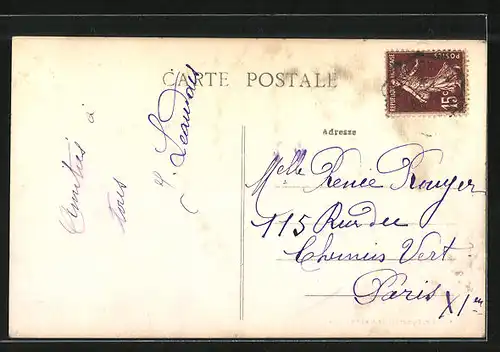 CARTE POSTALE
Adresse
Amitiés à
tous
Melle Renée Rouyer
115 Rue du
Chemin Vert
Paris XIme
REPUBLIQUE FRANÇAISE
15c
POSTES